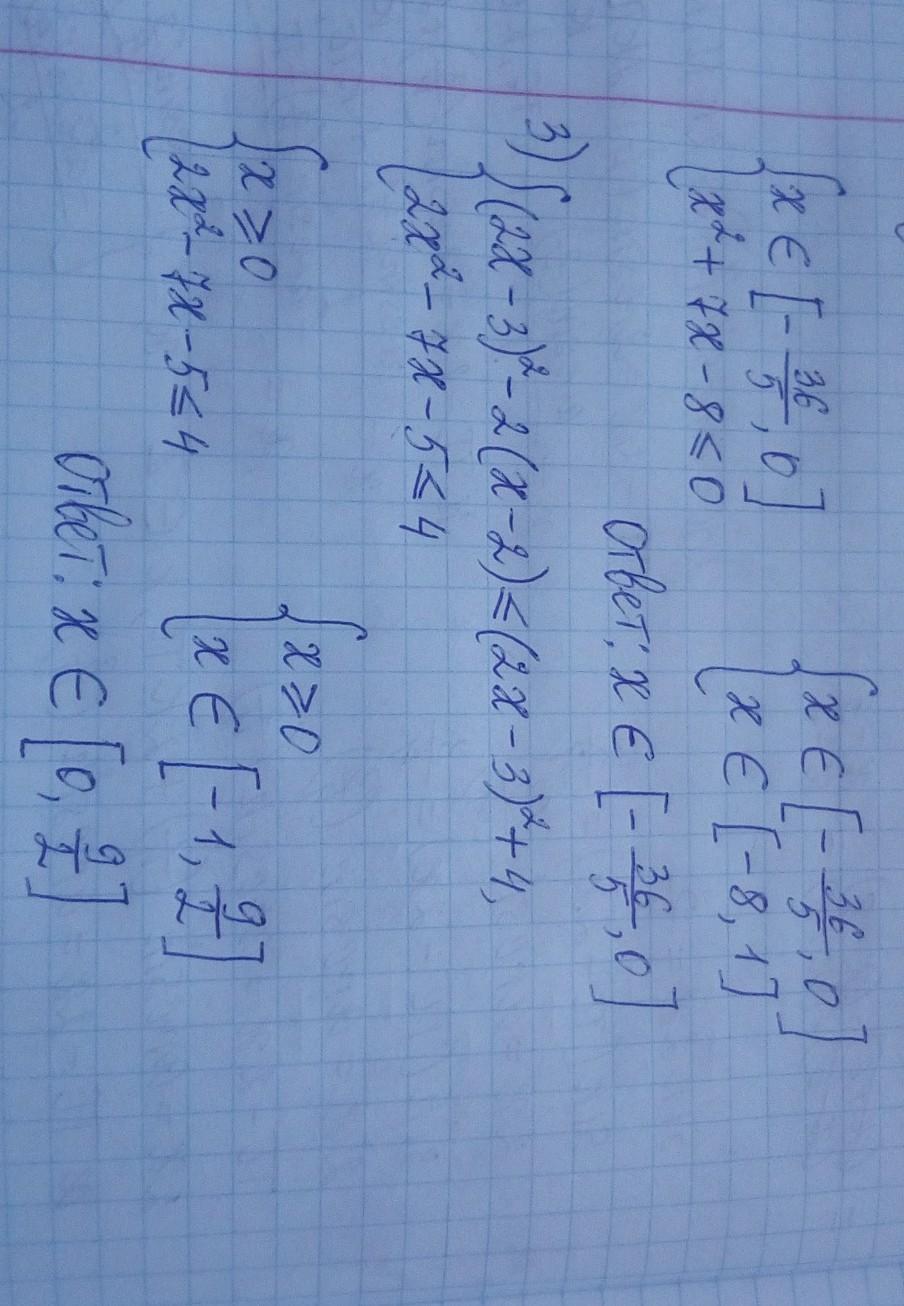 { x ∈ [-36/5, 0]
{ x² + 7x - 8 ≤ 0
{ x ∈ [-36/5, 0]
{ x ∈ [-8, 1]
Ответ: x ∈ [-36/5, 0]
3) { (2x - 3)² - 2(x - 2) ≤ (2x - 3)² + 4,
{ 2x² - 7x - 5 ≤ 4
{ x ≥ 0
{ 2x² - 7x - 5 ≤ 4
{ x ≥ 0
{ x ∈ [-1, 9/2]
Ответ: x ∈ [0, 9/2]